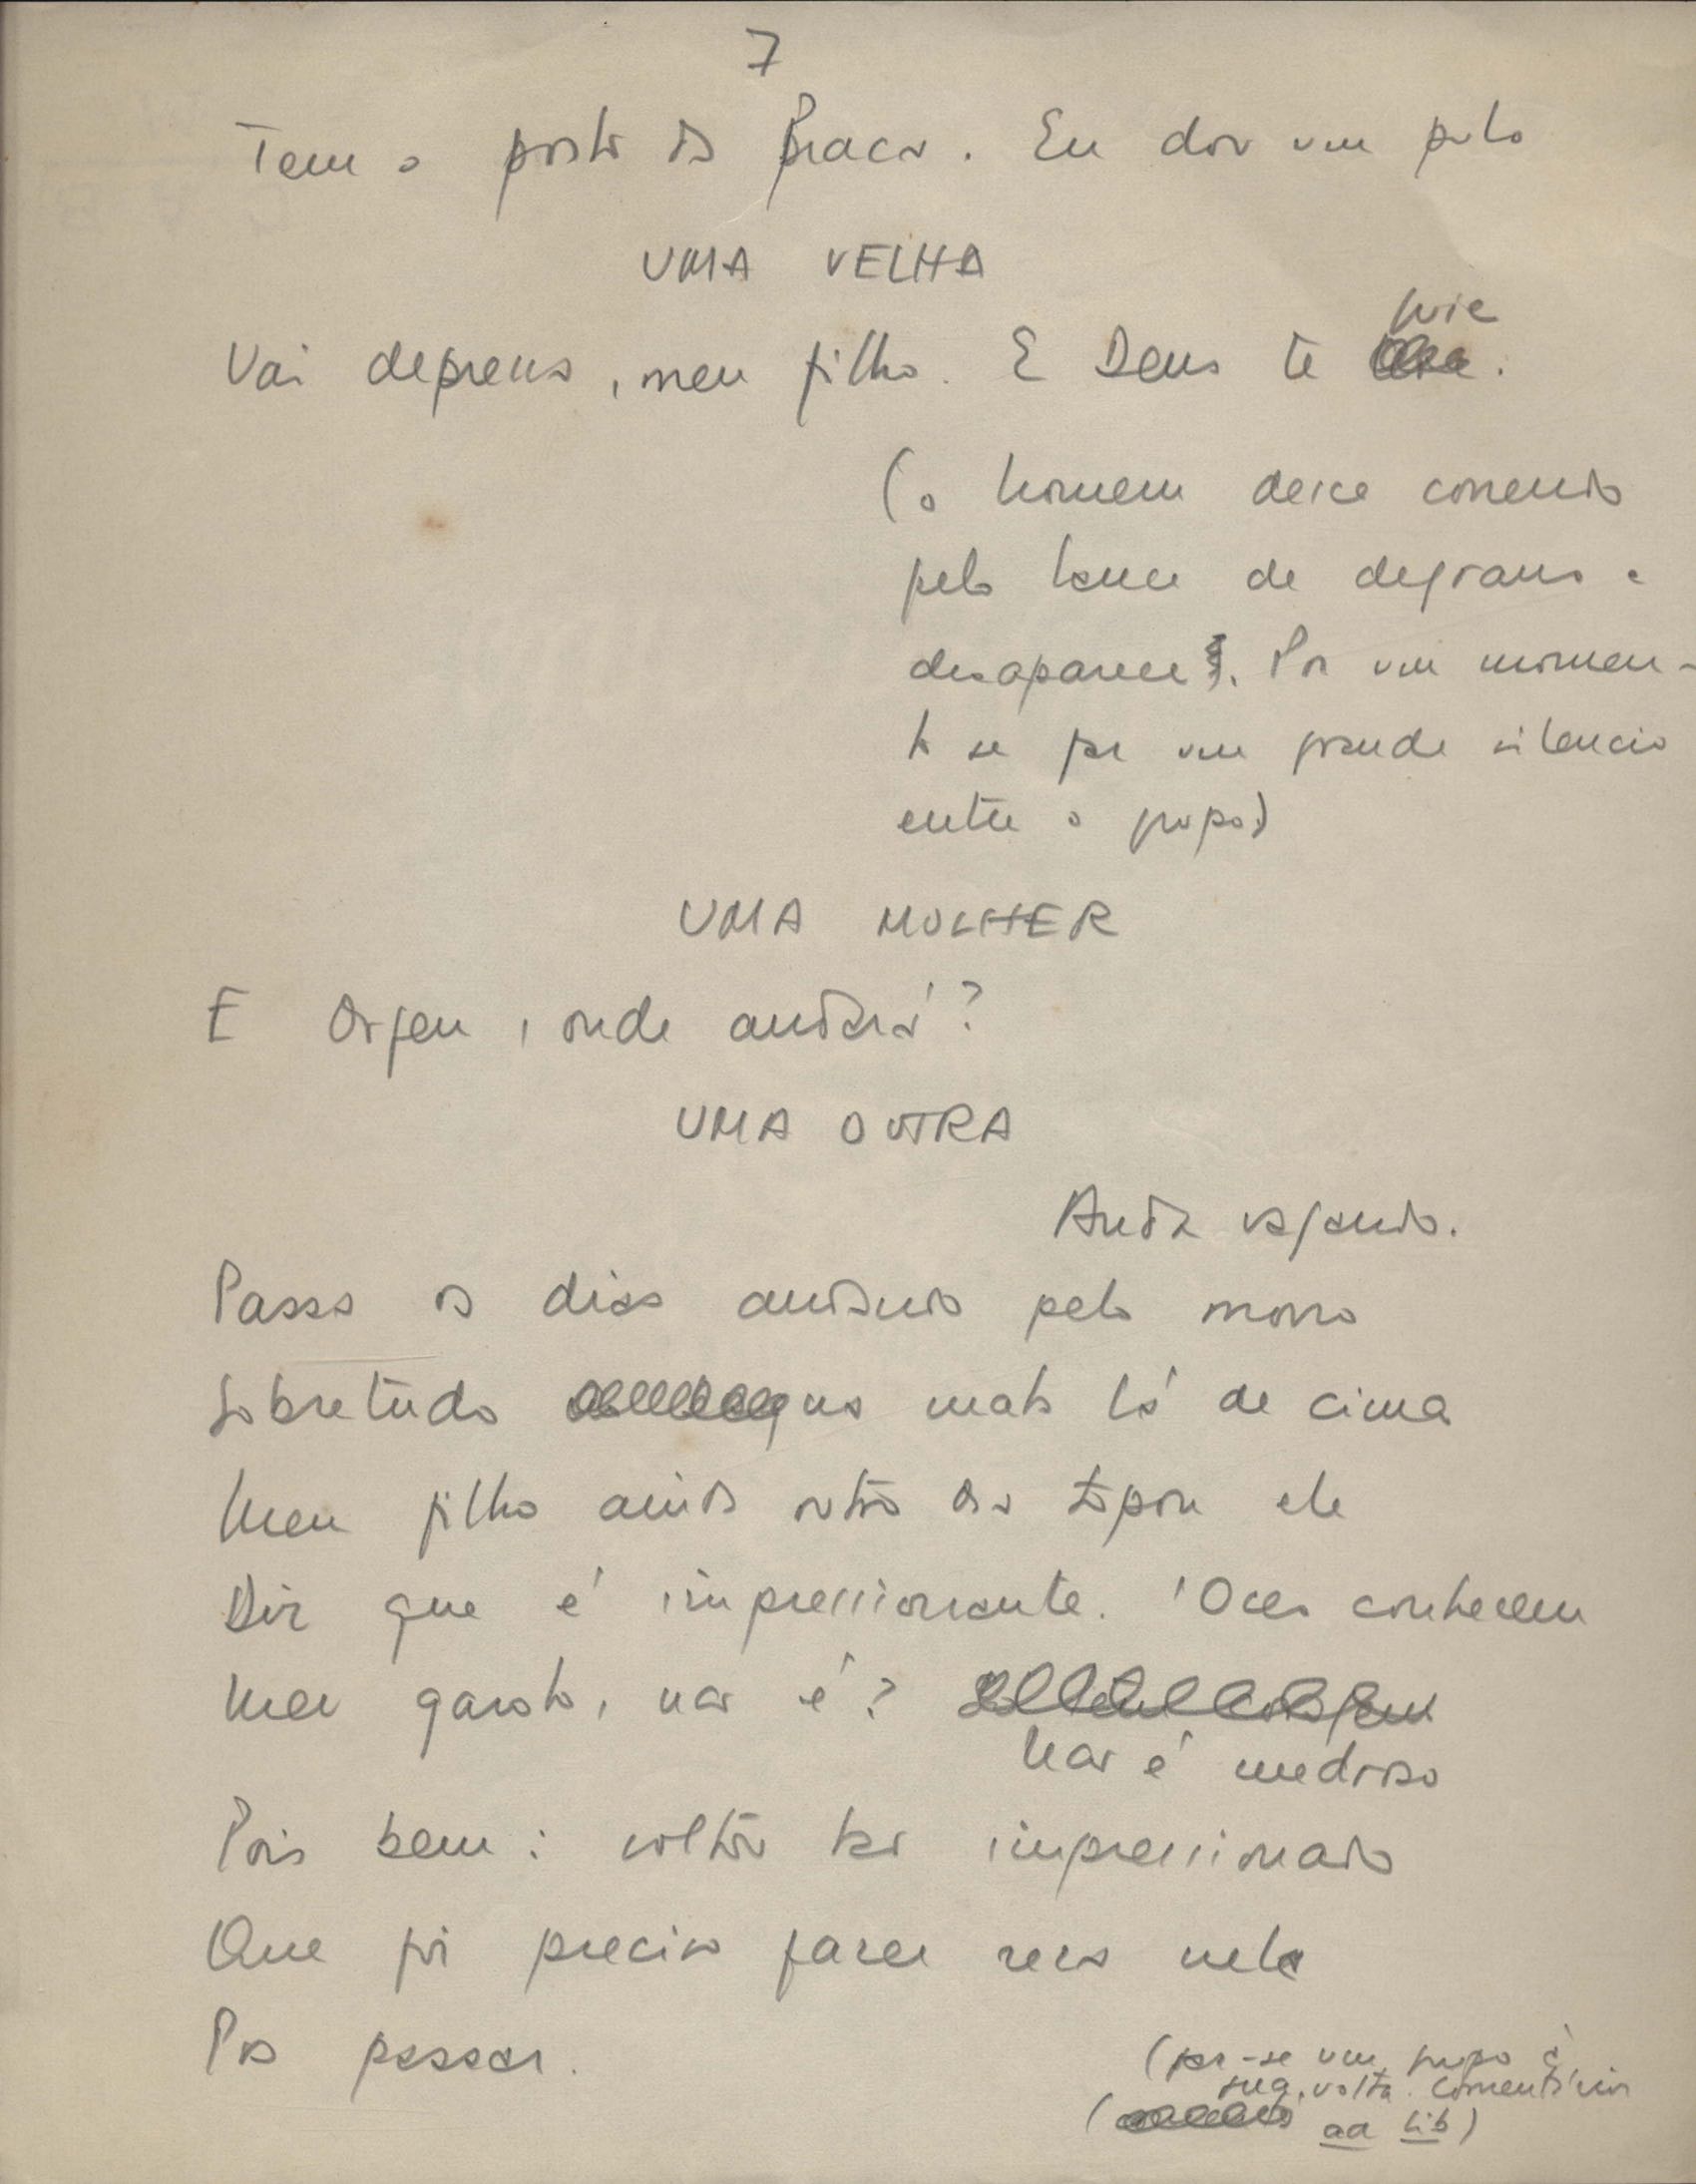 7
Tem o posto da Praça. Eu dou um pulo
UMA VELHA
Vai depressa, meu filho. E Deus te guie.
(o homem desce correndo
pelo lance de degraus e
desaparece. Por um momen-
to se faz um grande silencio
entre o grupo)
UMA MULHER
E Orfeu, onde andará?
UMA OUTRA
Anda vagando.
Passa os dias andando pelo morro
Sobretudo no mato lá de cima
Meu filho ainda outro dia topou ele
Diz que é impressionante. 'Ocês conhecem
Meu garoto, não é?
Não é medroso
Pois bem: voltou tão impressionado
Que foi preciso fazer reza nele
Pra passar.
(faz-se um grupo à
sua volta. Comentários
ad lib)